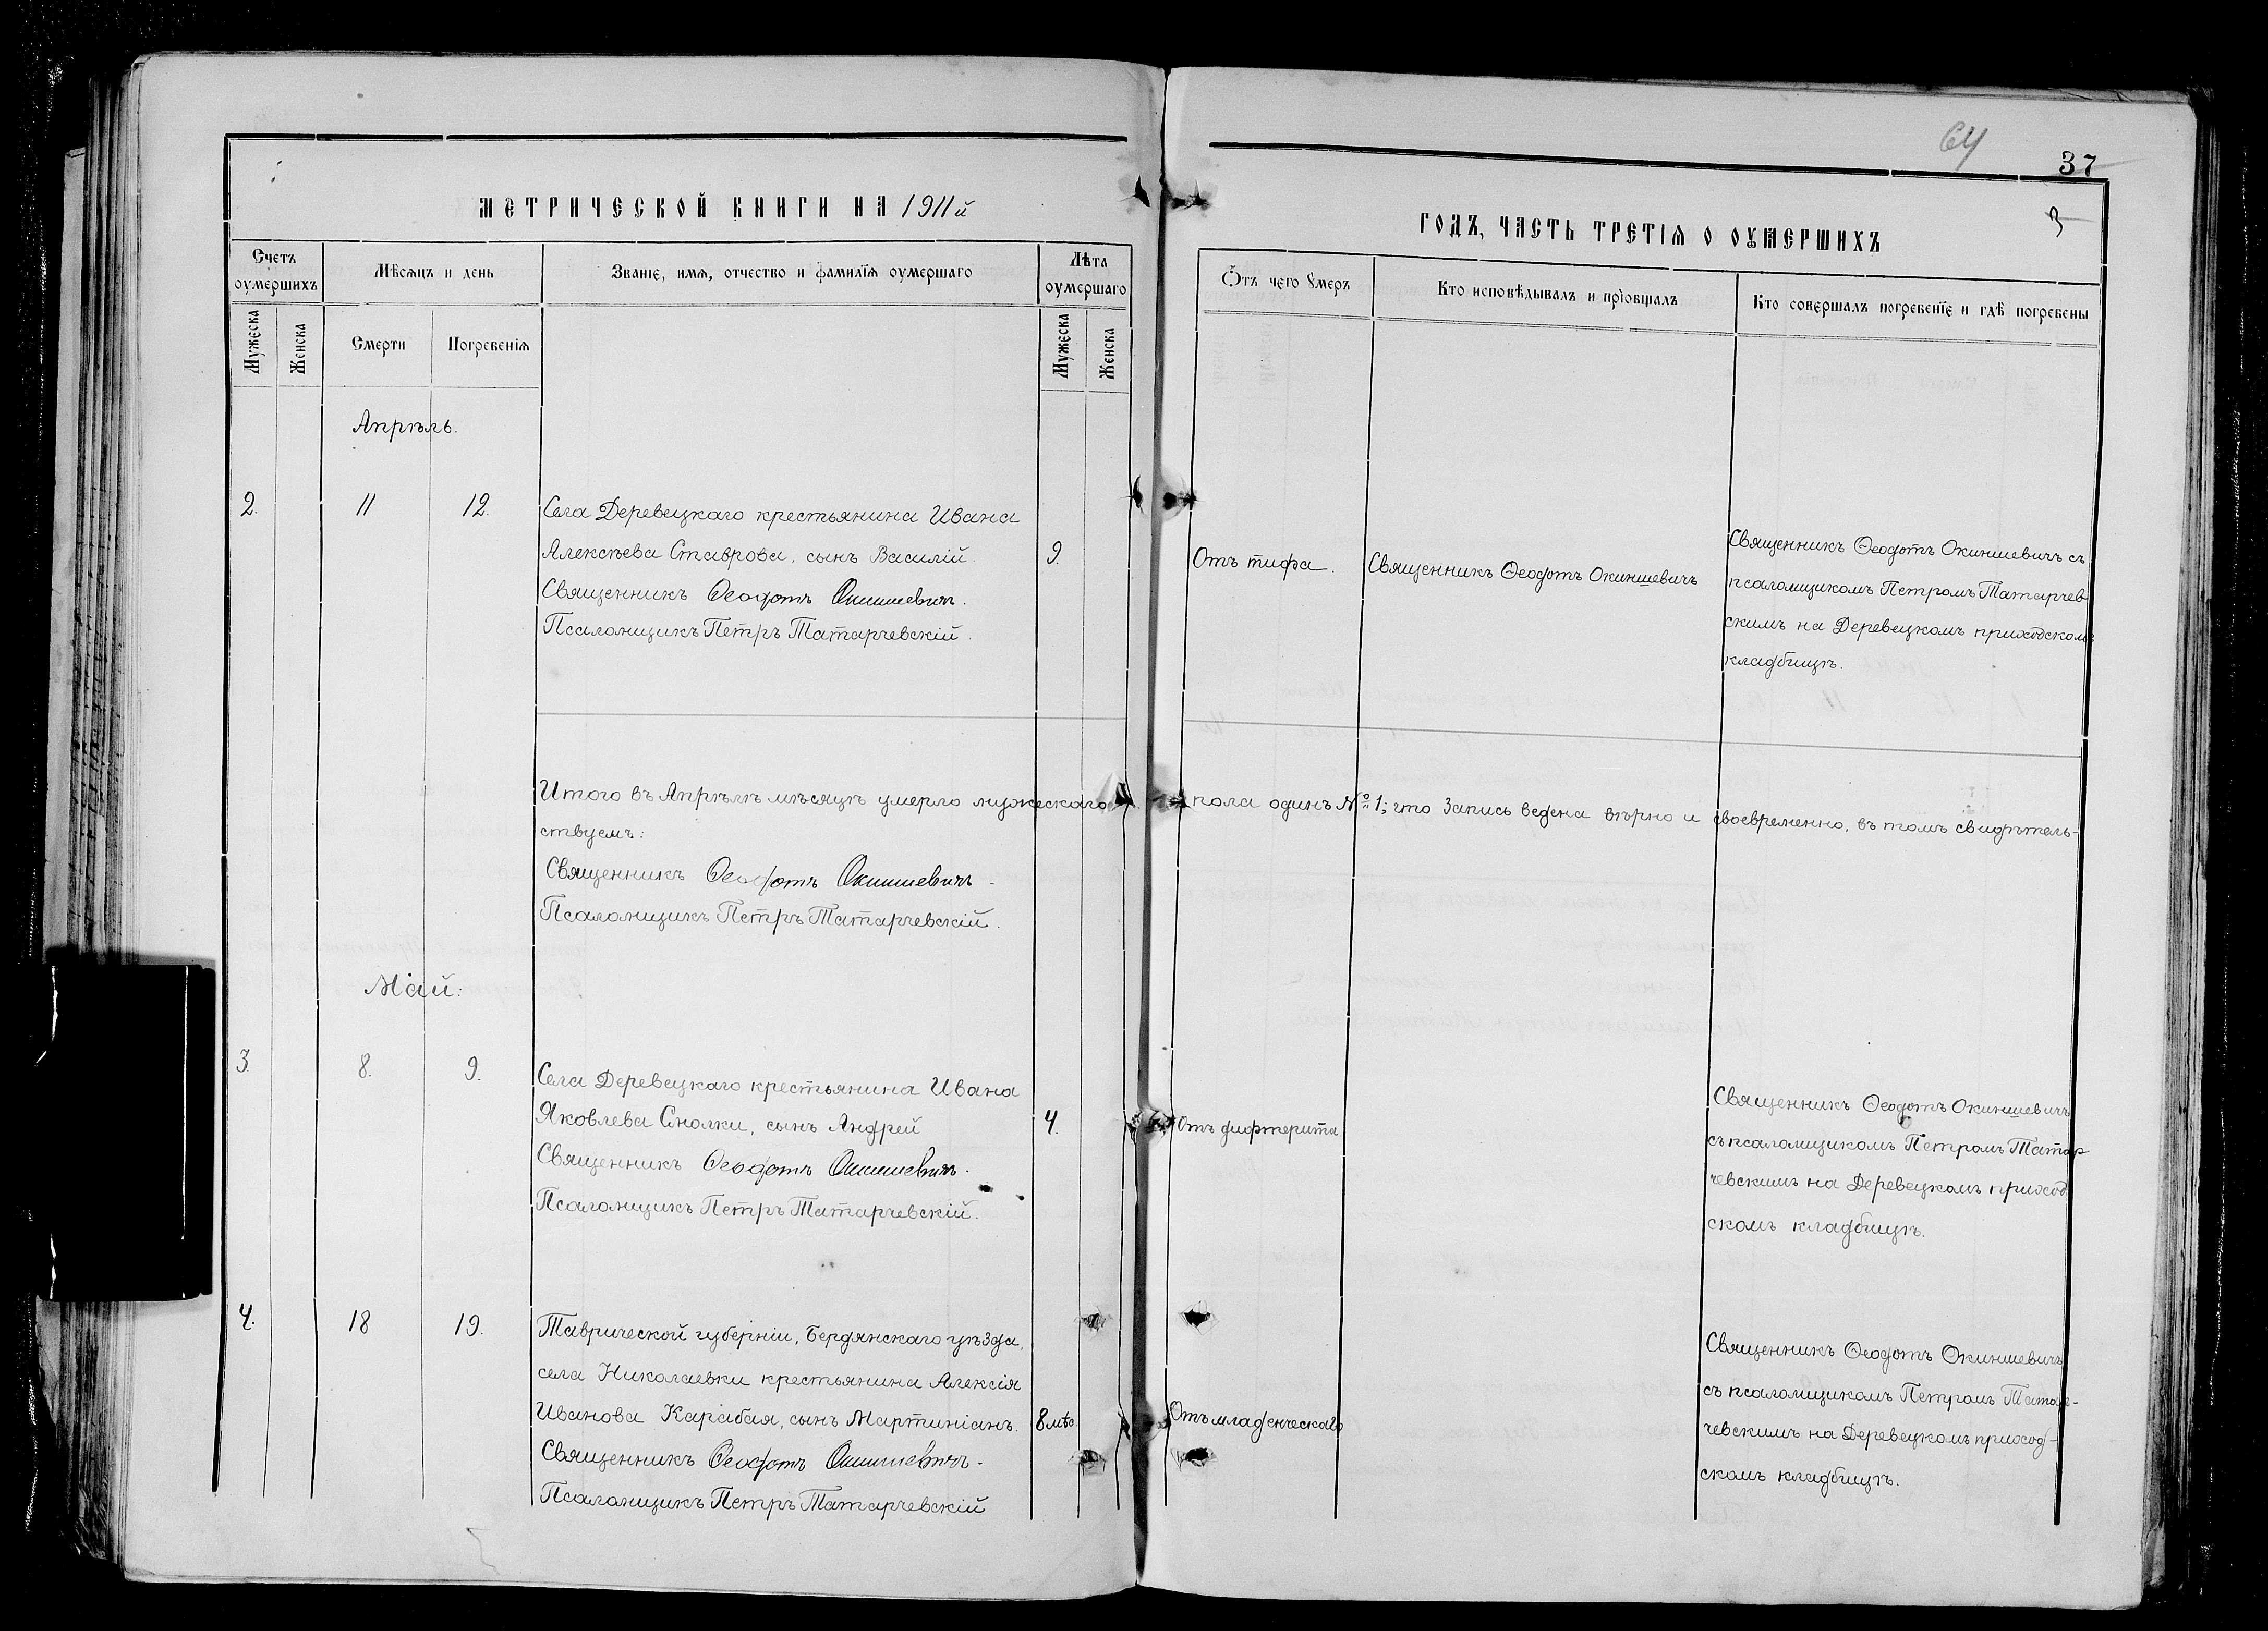 64
37
3
МЕТРИЧЕСКОЙ КНИГИ НА 1911й
ГОДЪ, ЧАСТЬ ТРЕТІЯ О ОУМЕРШИХЪ
Счетъ оумершихъ
Мѣсяцъ и день
Званіе, имя, отчество и фамилія оумершаго
Лѣта оумершаго
Мужеска
Женска
Смерти
Погребенія
Мужеска
Женска
Ѿтъ чего умеръ
Кто исповѣдывалъ и пріобщалъ
Кто совершалъ погребеніе и гдѣ погребены
Апрѣль.
2. 11 12. Села Деревецкаго крестьянина Ивана
Алексѣева Ставрова, сынъ Василій. 9.
Священникъ Ѳеодотъ Окиншевичъ.
Псаломщикъ Петръ Татарчевскій.
Отъ тифа.
Священникъ Ѳеодотъ Окиншевичъ
Священникъ Ѳеодотъ Окиншевичъ съ
псаломщикомъ Петромъ Татарчев
скимъ на Деревецкомъ приходскомъ
кладбищѣ.
Итого въ Апрѣлѣ мѣсяцѣ умерло мужескаго пола одинъ № 1; что запись ведена вѣрно и своевременно, въ томъ свидѣтель-
ствуемъ:
Священникъ Ѳеодотъ Окиншевичъ.
Псаломщикъ Петръ Татарчевскій.
Май:
3. 8. 9. Села Деревецкаго крестьянина Ивана
Яковлева Смолки, сынъ Андрей 4.
Священникъ Ѳеодотъ Окиншевичъ.
Псаломщикъ Петръ Татарчевскій.
Отъ дифтерита
Священникъ Ѳеодотъ Окиншевичъ
съ псаломщикомъ Петромъ Татар
чевскимъ на Деревецкомъ приход
скомъ кладбищѣ.
4. 18 19. Таврической губерніи, Бердянскаго уѣзда,
села Николаевки крестьянина Алексія
Иванова Карабая, сынъ Мартиніанъ. 8 мѣс.
Священникъ Ѳеодотъ Окиншевичъ.
Псаломщикъ Петръ Татарчевскій
Отъ младенческаго
Священникъ Ѳеодотъ Окиншевичъ
съ псаломщикомъ Петромъ Татар-
чевскимъ на Деревецкомъ приход-
скомъ кладбищѣ.